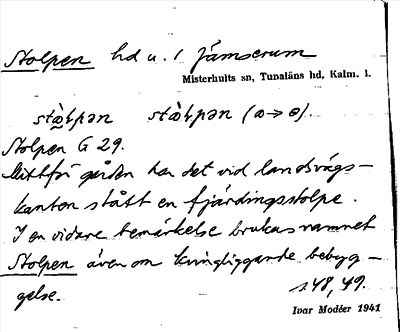 Stolpen hd u. 1 Jämserum
Misterhults sn, Tunaläns hd, Kalm. l.
stɑ̀ɫpən stɑ̀ɫpən (ɑ → ɵ).
Stolpen G 29.
Mittför gården har det vid landsvägs-
kanten stått en fjärdingsstolpe.
I en vidare bemärkelse brukas namnet
Stolpen även om kringliggande bebyg-
gelse.
148, 49.
Ivar Modéer 1941